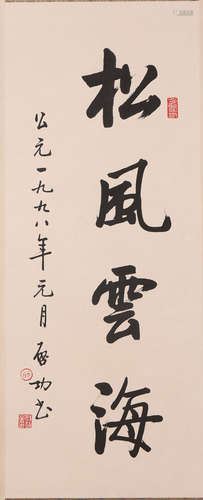 松風雲海
公元一九九八年元月 啓功书